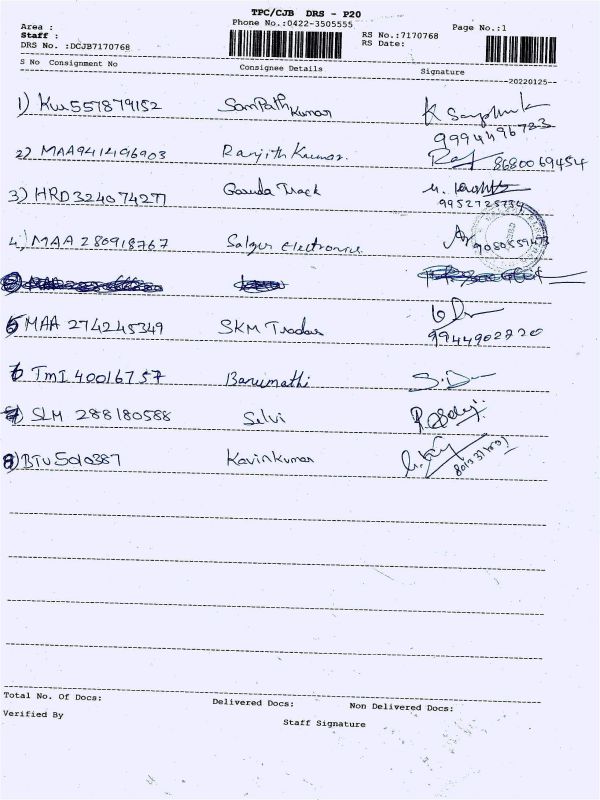 TPC/CJB DRS - P20
Area :
Phone No.:0422-3505555
Page No.:1
Staff :
RS No.:7170768
DRS No. :DCJB7170768
RS Date:
S No Consignment No
Consignee Details
Signature
20220125
1) KUU557879152 Sampath Kumar
9994496723
2) MAA941496903 Ranjith Kumar. 8680069454
3) HRD324074277 Gowda Track
9952728734
4) MAA 280918767 Salzer Electronics 9080559473
5 MAA 274245349 SKM Traders
9944902220
6 TMI 40016757 Banumathi
7) SLM 288180588 Selvi
8) BTU5010387 Kavinkumar
Total No. Of Docs:
Delivered Docs:
Non Delivered Docs:
Verified By
Staff Signature